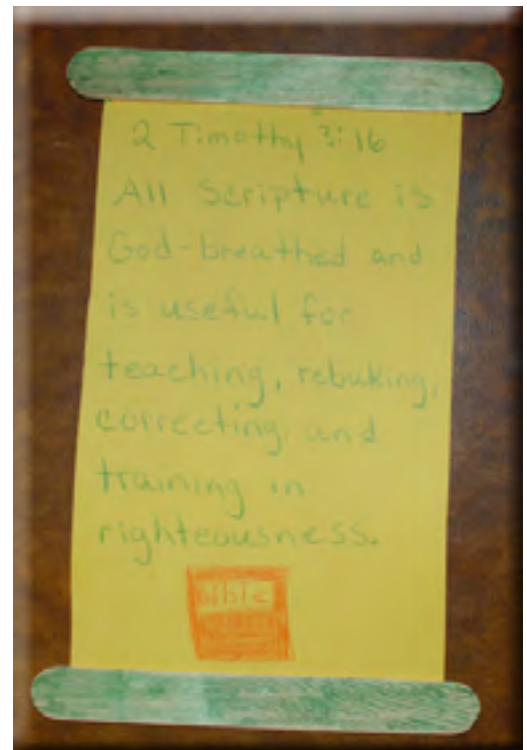 2 Timothy 3:16
All Scripture is
God-breathed and
is useful for
teaching, rebuking,
correcting and
training in
righteousness.
bible